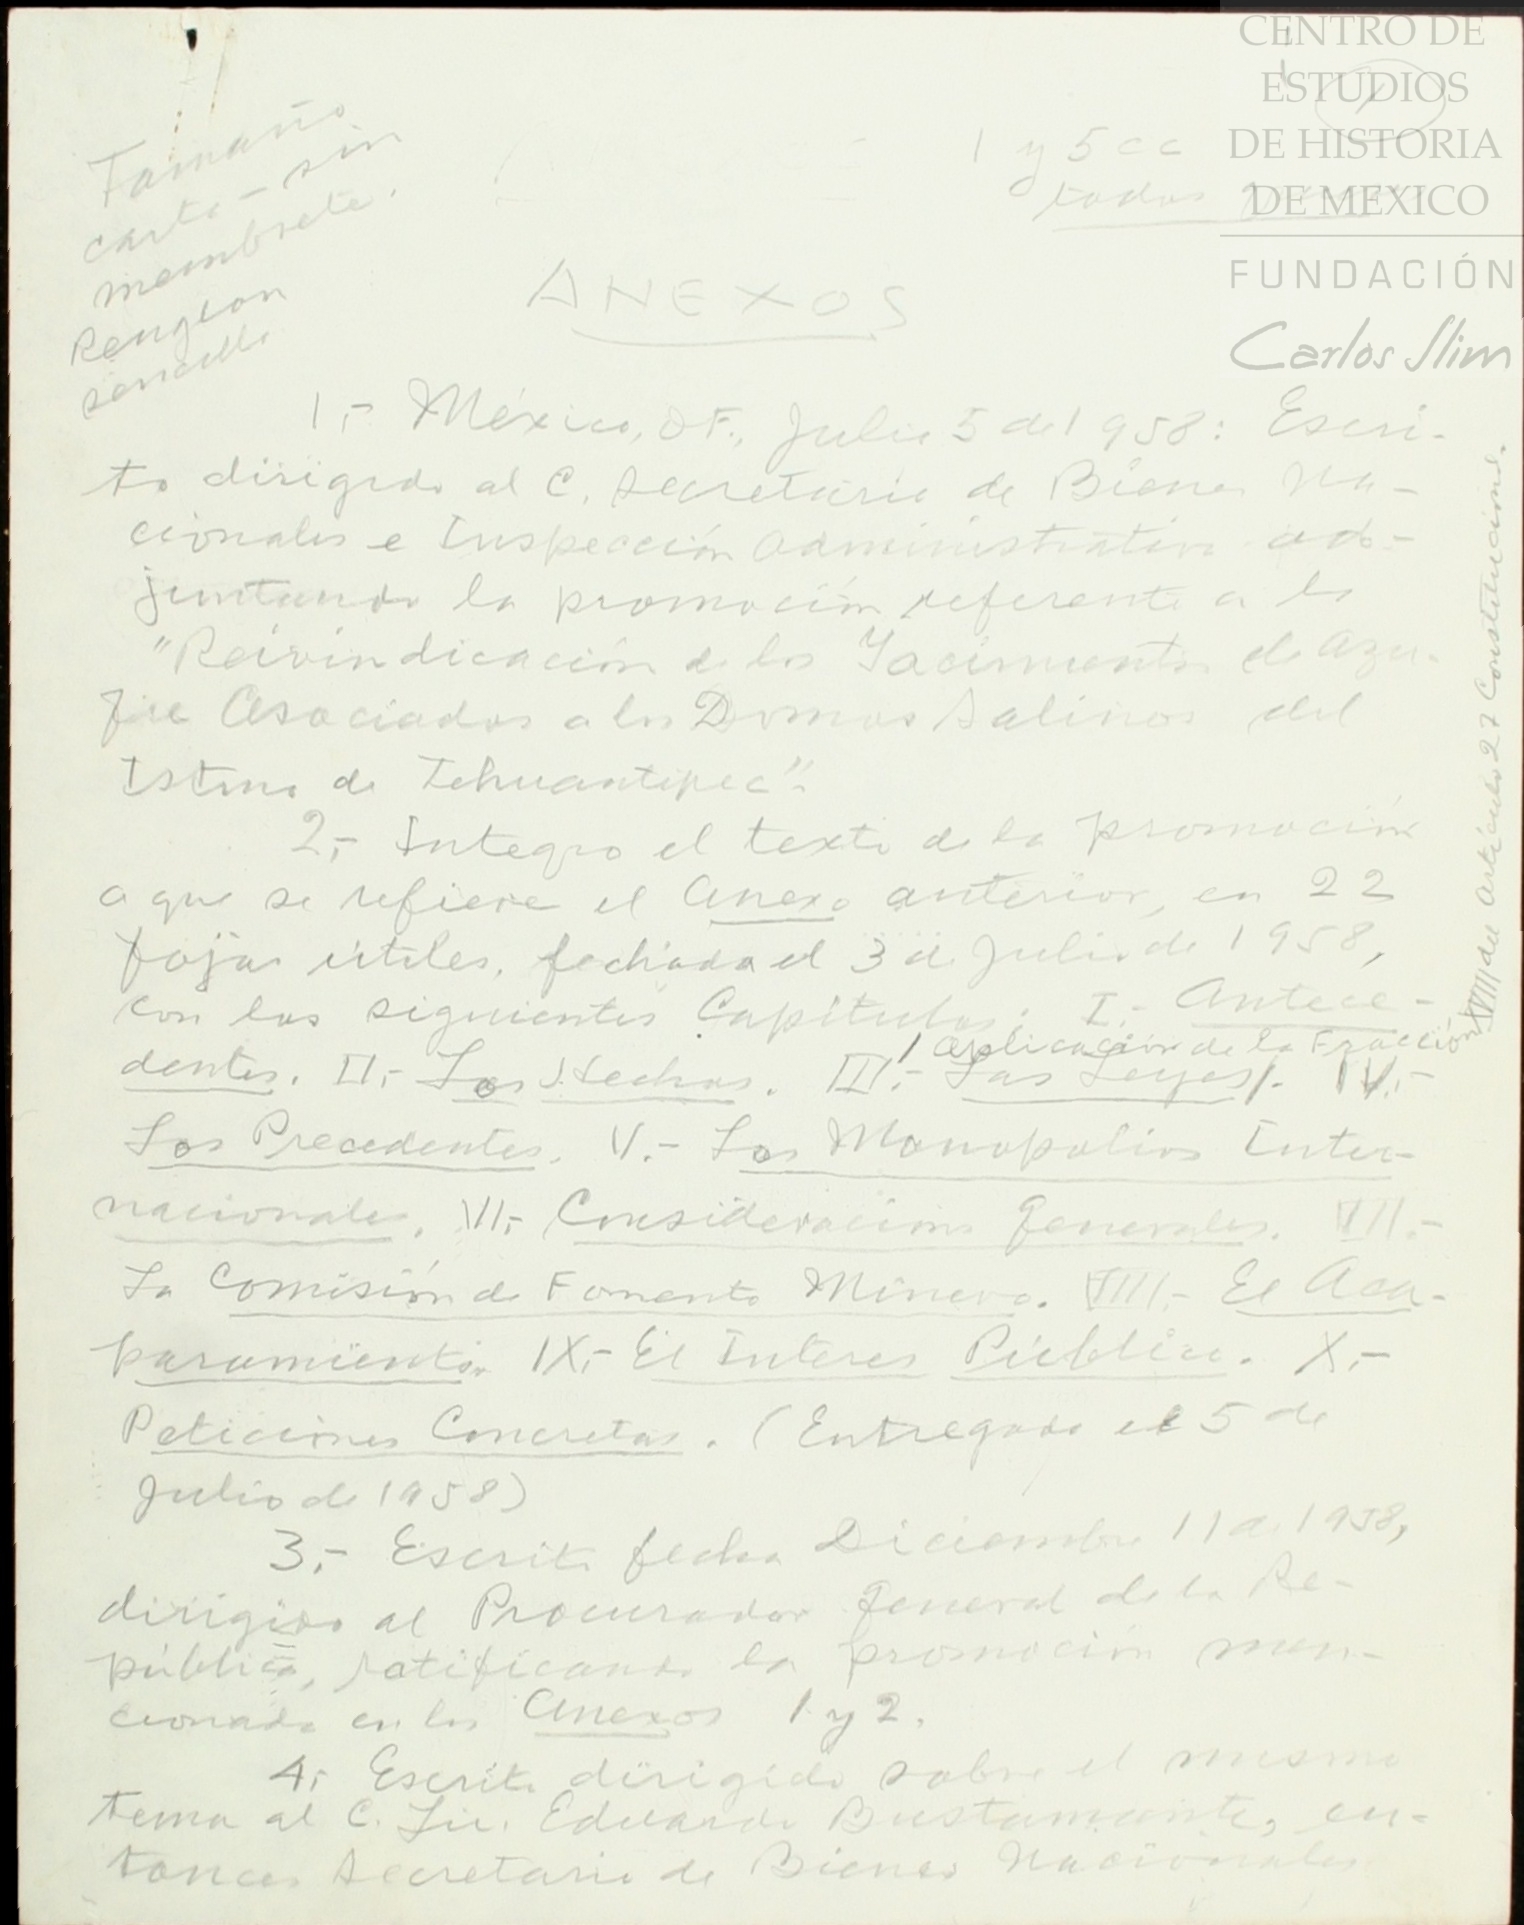 CENTRO DE
ESTUDIOS
DE HISTORIA
DE MEXICO
FUNDACIÓN
Carlos Slim
1
Tamaño
carta - sin
membrete.
Renglon
sencillo
1 y 5 cc
todas
ANEXOS
1.- México, D.F., Julio 5 de 1958: Escri-
to dirigido al C. Secretario de Bienes Na-
cionales e Inspección Administrativa ad-
juntando la promoción referente a la
"Reivindicación de los Yacimientos de Azu-
fre Asociados a los Domos Salinos del
Istmo de Tehuantepec".
2.- Integro el texto de la promoción
a que se refiere el Anexo anterior, en 22
fojas utiles, fechada el 3 de Julio de 1958,
con los siguientes Capítulos: I.- Antece-
dentes. II.- Los Hechos. III.- Las Leyes. IV.-
Aplicación de la Fracción
XVIII del Artículo 27 Constitucional.
Los Precedentes. V.- Los Monopolios Inter-
nacionales. VI.- Consideraciones Generales. VII.-
La Comisión de Fomento Minero. VIII.- El Aca-
paramiento. IX.- El Interes Público. X.-
Peticiones Concretas. (Entregado el 5 de
Julio de 1958)
3.- Escrito fecha Diciembre 11 de 1958,
dirigido al Procurador General de la Re-
pública, ratificando la promoción men-
cionada en los Anexos 1 y 2.
4.- Escrito dirigido sobre el mismo
tema al C. Lic. Eduardo Bustamante, en-
tonces Secretario de Bienes Nacionales